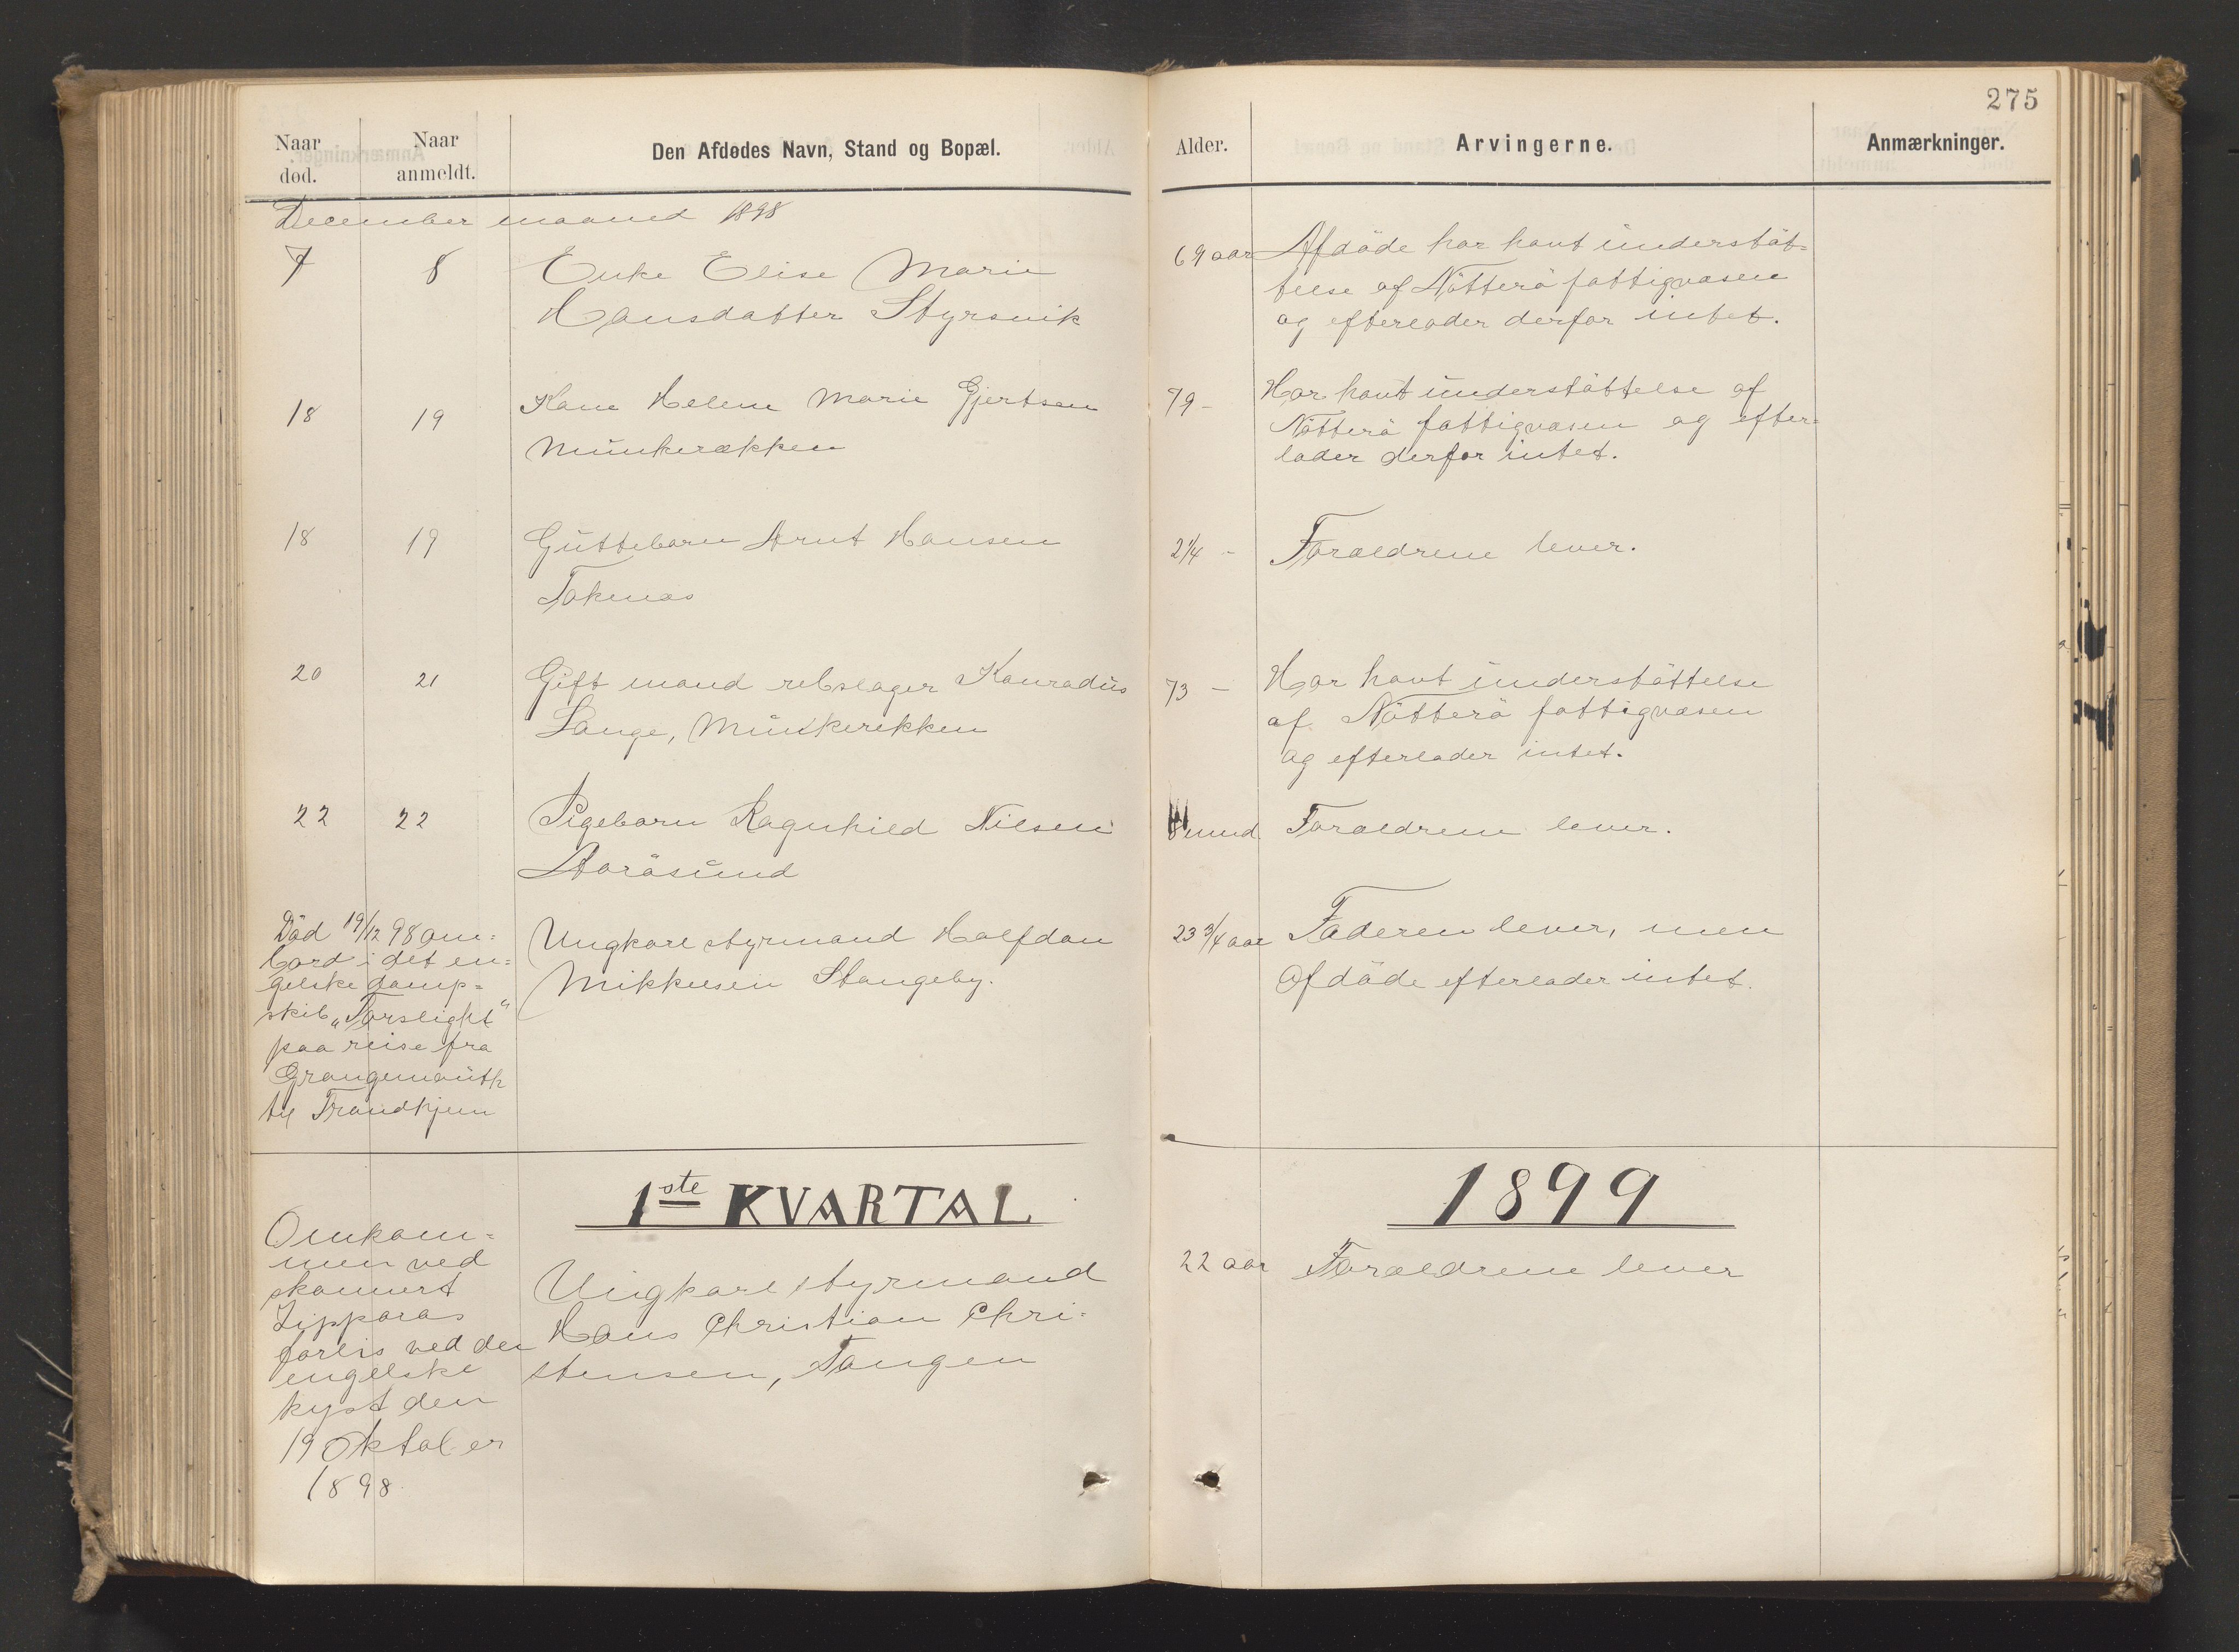 275
Naar død.
Naar anmeldt.
Den Afdødes Navn, Stand og Bopæl.
Alder.
Arvingerne.
Anmærkninger.
December maaned 1898
7 8 Enke Elise Marie
Hansdatter Styrsvik
69 aar Afdöde har havt understöt-
telse af Nötterö fattigvæsen
og efterlader derfor intet.
18 19 Kone Helene Marie Gjertsen
Munkerækken
79 - Har havt understöttelse af
Nötterö fattigvæsen og efter-
lader derfor intet.
18 19 Guttebarn Arnt Hansen
Tokenes
2 1/4 - Forældrene lever.
20 21 Gift mand rebslager Konradus
Lange, Munkerekken
73 - Har havt understöttelse
af Nötterö fattigvæsen
og efterlader intet.
22 22 Pigebarn Ragnhild Nilsen
Aarösund
mnd Forældrene lever.
Död 19/12 98 om-
bord i det en-
gelske damp-
skib „Torslight“
paa reise fra
Grangemouth
til Trondhjem
Ungkarl styrmand Halfdan
Mikkelsen Stangeby.
23 3/4 aar Faderen lever, men
Afdöde efterlader intet.
1ste KVARTAL 1899
Omkom-
men ved
skonnert
Zipporas
forlis ved den
engelske
kyst den
19 Oktober
1898
Ungkarl styrmand
Hans Christian Chri-
stensen, Tangen
22 aar Forældrene lever